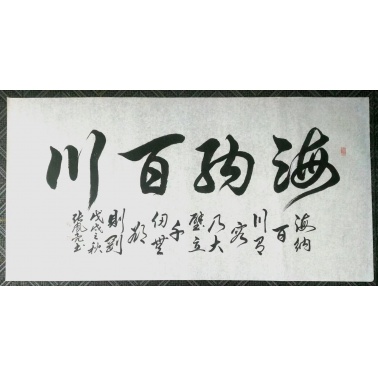 海纳百川
海纳
百
川有
容
乃大
壁立
千
仞無
欲
则刚
戊戌之秋